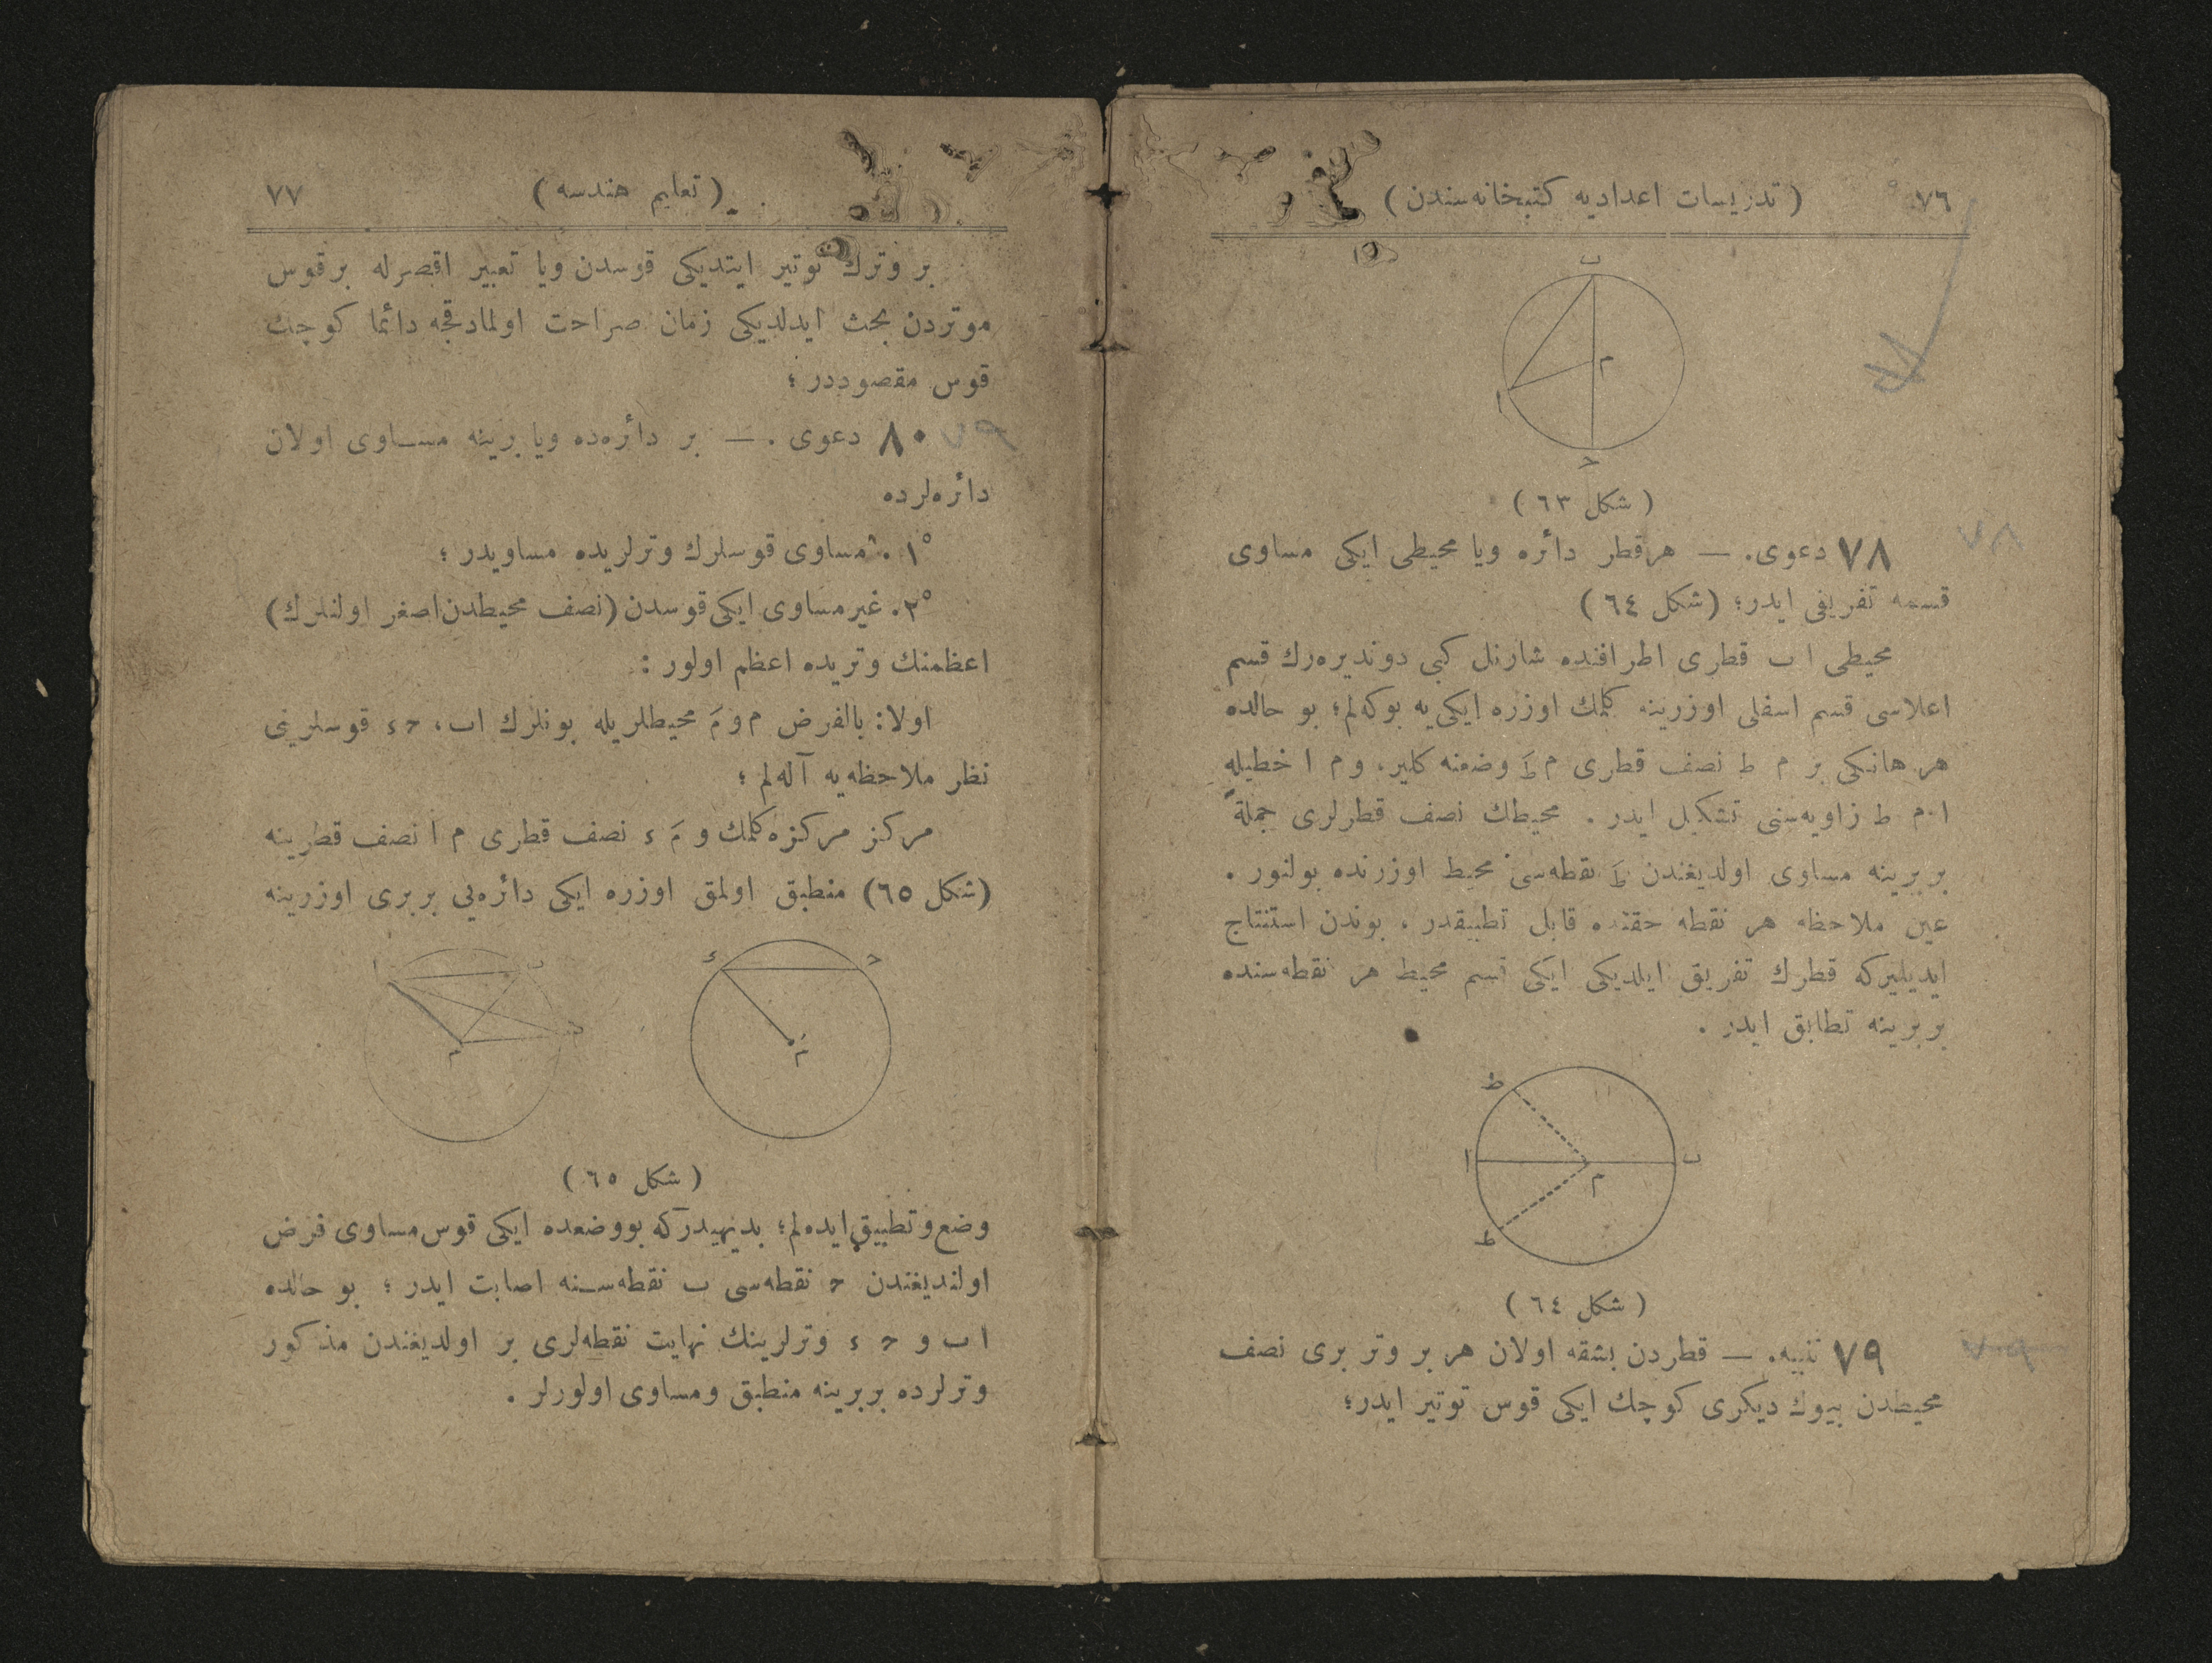 ٧٦
( تدريسات اعداديه كتبخانه‌سندن )
ب
م
ا
ح
( شكل ٦٣ )
٧٨ دعوى. — هرقطر دائره ويا محيطى ايكى مساوى
قسمه تفريق ايدر؛ (شكل ٦٤ )
محيطى ا ب قطرى اطرافنده شارنل كبى دونديره‌رك قسم
اعلاسى قسم اسفلى اوزرينه كلمك اوزره ايكى‌يه بوكه‌لم؛ بو حالده
هر هانكى بر م ط نصف قطرى م طَ وضعنه كلير، و م ا خطيله
ا م ط زاويه‌سنى تشكيل ايدر . محيطك نصف قطرلرى جملةً
بربرينه مساوى اولديغندن طَ نقطه‌سى محيط اوزرنده بولنور .
عين ملاحظه هر نقطه حقنده قابل تطبيقدر ، بوندن استنتاج
ايديليركه قطرك تفريق ايلديكى ايكى قسم محيط هر نقطه‌سنده
بربرينه تطابق ايدر .
ط
ا
ب
م
ط
( شكل ٦٤ )
٧٩ تنبيه. — قطردن بشقه اولان هر بر وتر برى نصف
محيطدن بيوك ديكرى كوچك ايكى قوس توتير ايدر؛
٧٧
( تعليم هندسه )
بر وترك توتير ايتديكى قوسدن ويا تعبير اقصرله برقوس
موتردن بحث ايدلديكى زمان صراحت اولمادقجه دائما كوچك
قوس مقصوددر ؛
٨٠ دعوى . — بر دائره‌ده ويا برينه مساوى اولان
دائره‌لرده
١° . مساوى قوسلرك وترلريده مساويدر ؛
٢° . غيرمساوى ايكى قوسدن (نصف محيطدن اصغر اولنلرك)
اعظمنك وتريده اعظم اولور :
اولا: بالفرض م و مَ محيطلريله بونلرك اب ، حء قوسلرينى
نظر ملاحظه‌يه آله‌لم ؛
مركز مركزه كلمك و مَ ء نصف قطرى م ا نصف قطرينه
(شكل ٦٥) منطبق اولمق اوزره ايكى دائره‌يى بربرى اوزرينه
ا
ب
م
د
ء
ح
مَ
( شكل ٦٥ )
وضع وتطبيق ايده‌لم؛ بديهيدركه بووضعده ايكى قوس مساوى فرض
اولنديغندن ح نقطه‌سى ب نقطه‌سنه اصابت ايدر ؛ بو حالده
ا ب و ح ء وترلرينك نهايت نقطه‌لرى بر اولديغندن مذكور
وترلرده بربرينه منطبق ومساوى اولورلر .